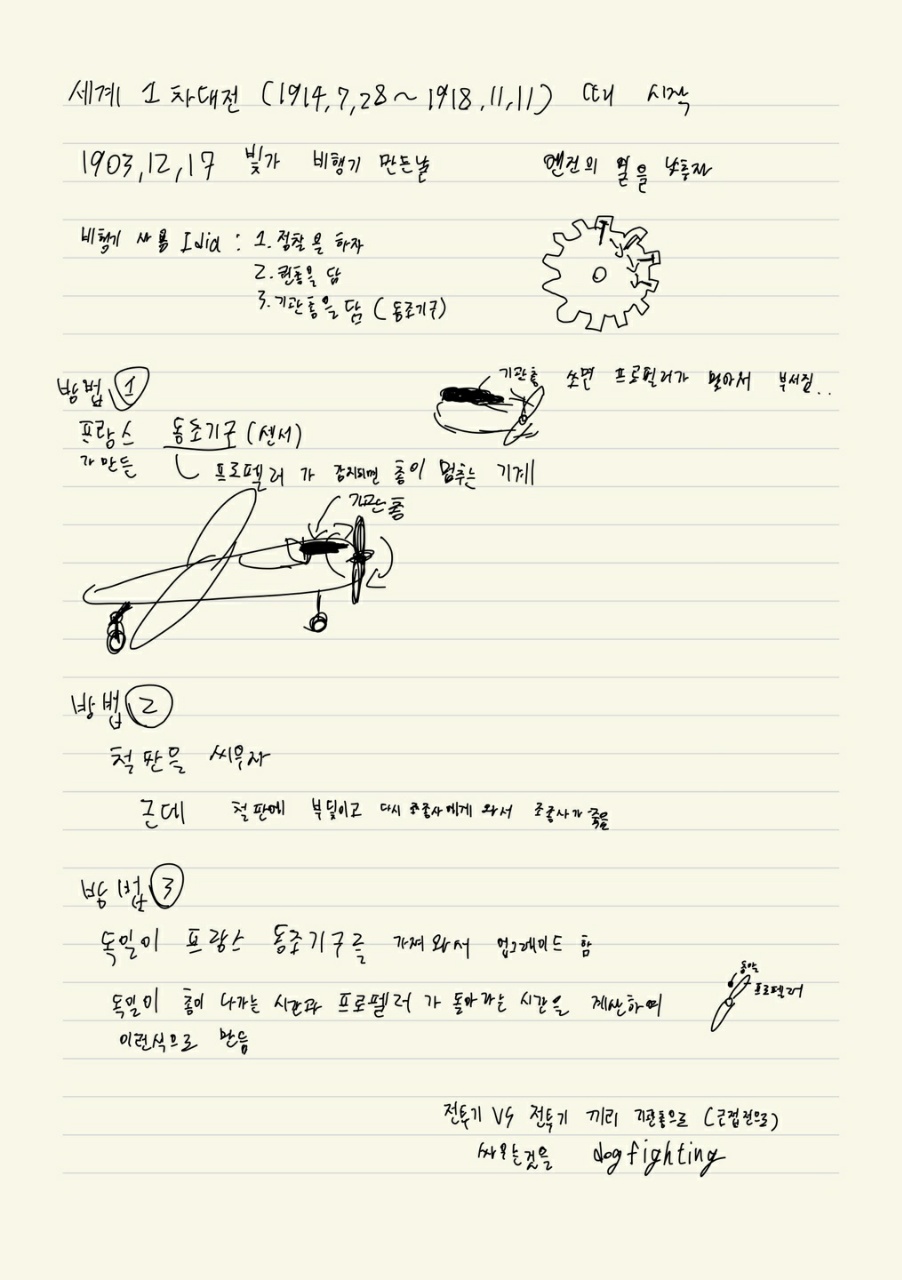 세계 1차대전 (1914,7,28~1918,11,11) 때 시작
1903,12,17 빛가 비행기 만든날
엔진의 열을 낮추자
비행기 사용 Idia : 1. 정찰을 하자
2. 권총을 담
3. 기관총을 담 (동조기구)
방법 ①
기관총 쏘면 프로펠러가 맞아서 부서짐..
프랑스 동조기구 (센서)
가 만든
프로펠러가 감지되면 총이 멈추는 기계
기관총
방법 ②
철판을 씌우자
근데 철판에 부딪이고 다시 조종사에게 와서 조종사가 죽음
방법 ③
독일이 프랑스 동조기구를 가져와서 업그레이드 함
총알
프로펠러
독일이 총이 나가는 시간과 프로펠러가 돌아가는 시간을 계산하여
이런식으로 만듬
전투기 VS 전투기 끼리 기관총으로 (근접전으로)
싸우는것을 dogfighting